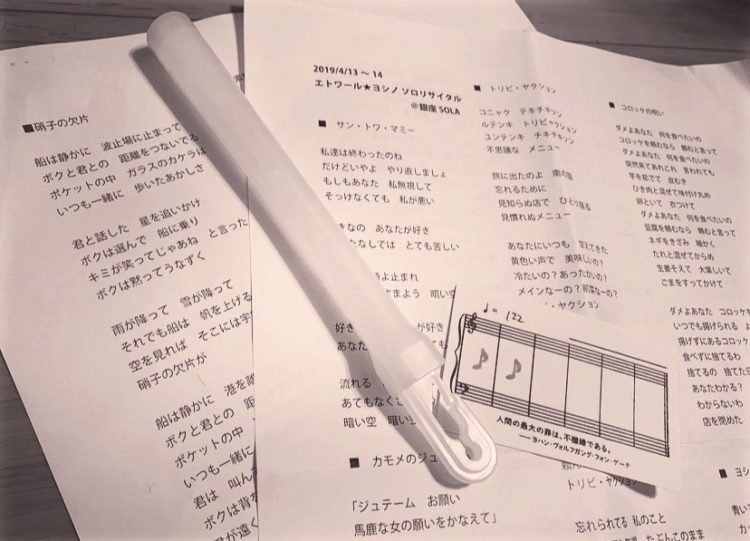 ■硝子の欠片
船は静かに 波止場に止まって
ボクと君との 距離をつないでる
ポケットの中 ガラスのカケラは
いつも一緒に 歩いたあかしさ
君と話した 星を追いかけ
ボクは選んで 船に乗り
キミが笑ってじゃあね と言った
ボクは黙ってうなずく
雨が降って 雪が降って
それでも船は 帆を上げる
空を見れば そこには宇
硝子の欠片が
船は静かに 港を
ボクと君との 距
ポケットの中
いつも一緒に
君は 叫ん
ボクは背
君が遠く
2019/4/13 ～ 14
エトワール★ヨシノ ソロリサイタル
@銀座 SOLA
■ サン・トワ・マミー
私達は終わったのね
だけどいやよ やり直しましょ
もしもあなた 私無視して
そっけなくても 私が悪い
きなの あなたが好き
たなしでは とても苦しい
よ止まれ
さまよう 暗い空
好き が好き
あなた
流れる
あてもなく
暗い空 暗い
■ カモメのジュ
「ジュテーム お願い
馬鹿な女の願いをかなえて」
■ トリビ・ヤクション
コニャク テキチキッソン
ルテンキ トリビャクション
ユンテンキ チキチキッソン
不思議な メニュー
旅に出たのよ 南の国
忘れるために
見知らぬ店で ひとり座る
見慣れぬメニュー
あなたにいつも 甘えてきた
黄色い声で 美味しいの?
冷たいの? あったかいの?
メインなーの? 前菜なーの?
ヤクション
トリビ・ヤクション
忘れられてる 私のこと
たぶんこのまま
■ コロッケの呪い
ダメよあなた 何を食べたいの
コロッケを頼むなら 頼むと言って
ダメよあなた 何を食べたいの
突然来てあれこれ 言われても
芋を茹でて 皮むき
ひき肉と混ぜて味付け丸め
卵といて 衣つけて
ダメよあなた 何を食べたいの
豆腐を頼むなら 頼むと言って
ネギをきざみ 細かく
たれと混ぜてからめ
生姜そえて 大葉しいて
ごまをすってかけて
ダメよあなた コロッケ
いつでも揚げられる よ
揚げずにあるコロッケ
食べずに捨てるわ
捨てるの 捨てた日
あなたわかる?
わからないわ
店を閉めた
■ ヨシ
♩= 122
人間の最大の罪は、不機嫌である。
── ヨハン・ヴォルフガング・フォン・ゲーテ